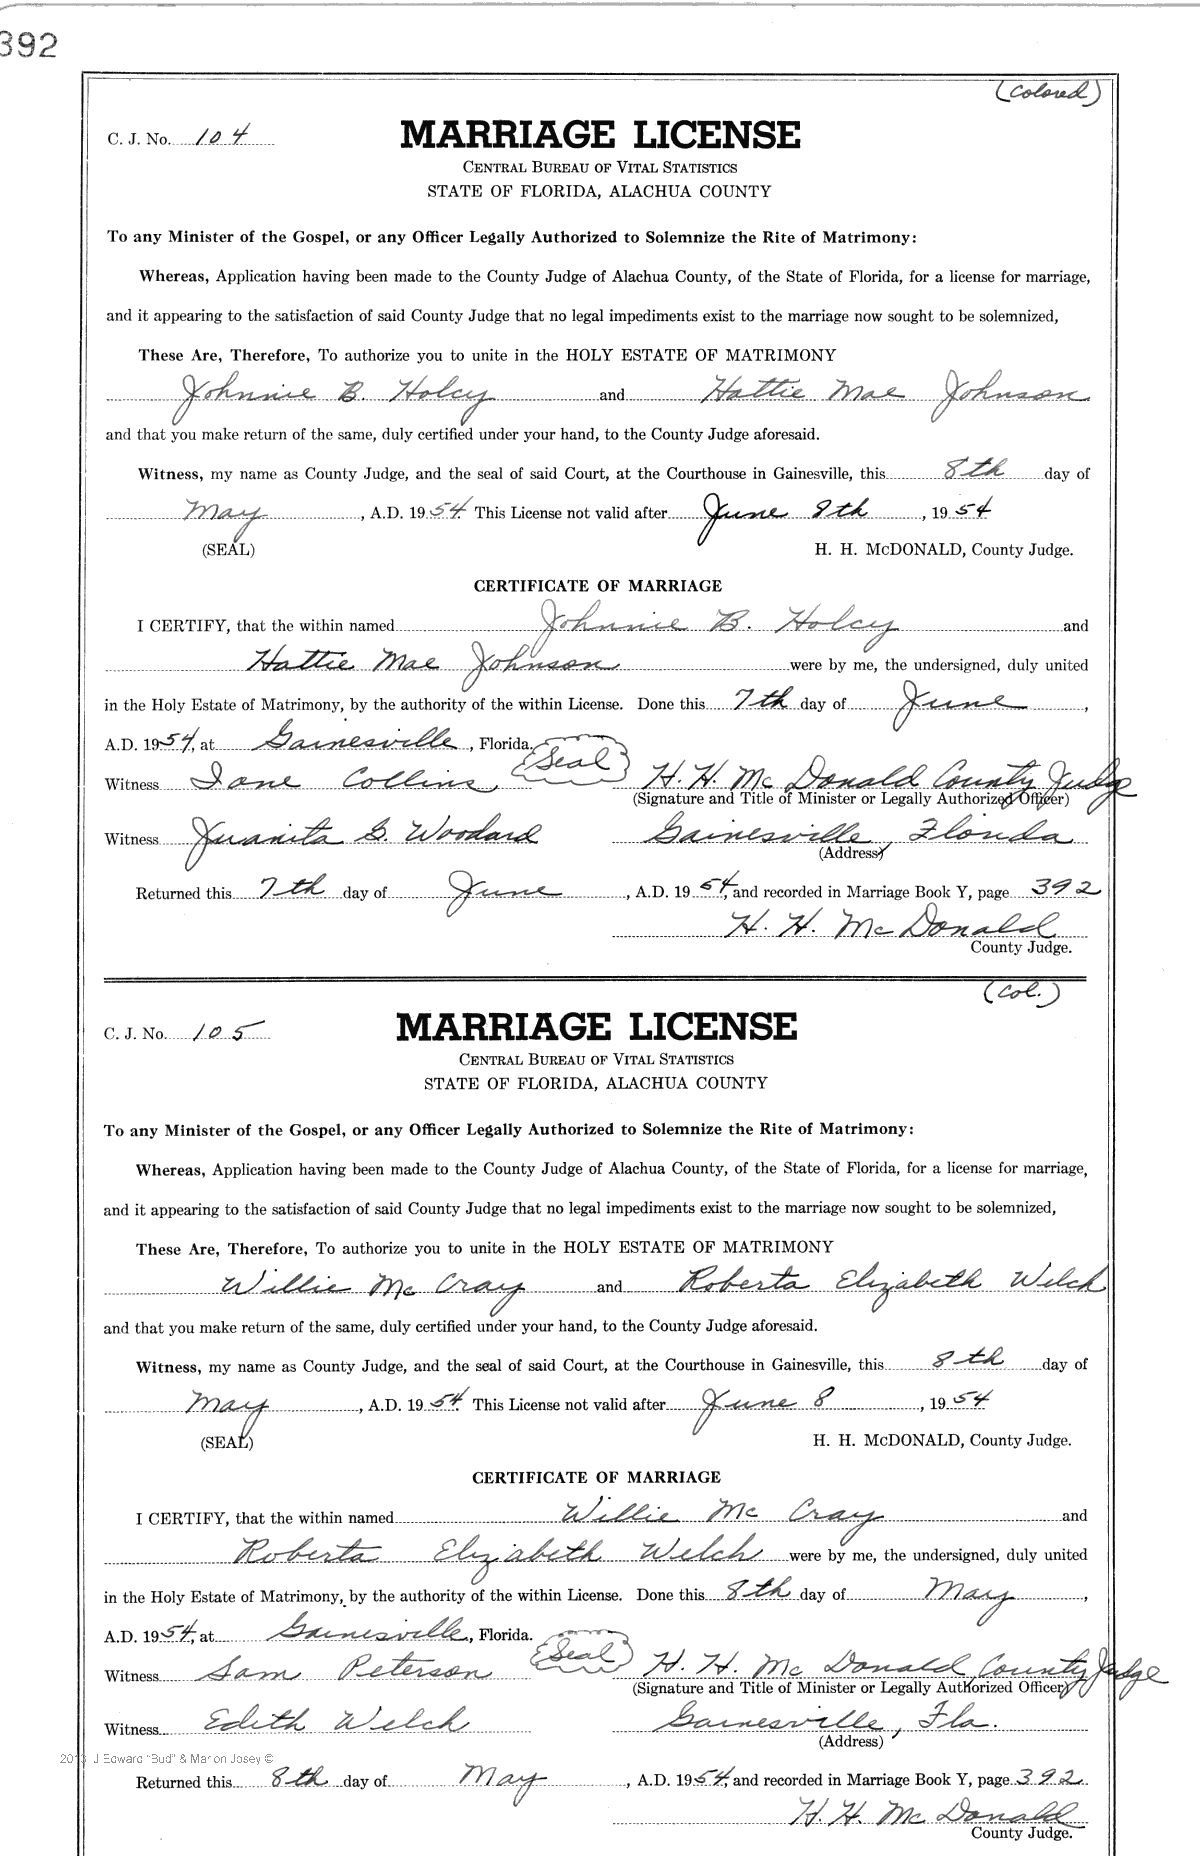 392
(Colored)
C. J. No. 104 MARRIAGE LICENSE
CENTRAL BUREAU OF VITAL STATISTICS
STATE OF FLORIDA, ALACHUA COUNTY
To any Minister of the Gospel, or any Officer Legally Authorized to Solemnize the Rite of Matrimony:
Whereas, Application having been made to the County Judge of Alachua County, of the State of Florida, for a license for marriage,
and it appearing to the satisfaction of said County Judge that no legal impediments exist to the marriage now sought to be solemnized,
These Are, Therefore, To authorize you to unite in the HOLY ESTATE OF MATRIMONY
Johnnie B. Holcy and Hattie Mae Johnson
and that you make return of the same, duly certified under your hand, to the County Judge aforesaid.
Witness, my name as County Judge, and the seal of said Court, at the Courthouse in Gainesville, this 8th day of
May, A.D. 1954. This License not valid after June 8th, 1954
(SEAL) H. H. McDONALD, County Judge.
CERTIFICATE OF MARRIAGE
I CERTIFY, that the within named Johnnie B. Holcy and
Hattie Mae Johnson were by me, the undersigned, duly united
in the Holy Estate of Matrimony, by the authority of the within License. Done this 7th day of June,
A.D. 1954, at Gainesville, Florida.
Seal
Witness Ione Collins H. H. McDonald County Judge
(Signature and Title of Minister or Legally Authorized Officer)
Witness Juanita G. Woodard Gainesville, Florida
(Address)
Returned this 7th day of June, A.D. 1954, and recorded in Marriage Book Y, page 392
H. H. McDonald
County Judge.
(Col.)
C. J. No. 105 MARRIAGE LICENSE
CENTRAL BUREAU OF VITAL STATISTICS
STATE OF FLORIDA, ALACHUA COUNTY
To any Minister of the Gospel, or any Officer Legally Authorized to Solemnize the Rite of Matrimony:
Whereas, Application having been made to the County Judge of Alachua County, of the State of Florida, for a license for marriage,
and it appearing to the satisfaction of said County Judge that no legal impediments exist to the marriage now sought to be solemnized,
These Are, Therefore, To authorize you to unite in the HOLY ESTATE OF MATRIMONY
Willie McCray and Roberta Elizabeth Welch
and that you make return of the same, duly certified under your hand, to the County Judge aforesaid.
Witness, my name as County Judge, and the seal of said Court, at the Courthouse in Gainesville, this 8th day of
May, A.D. 1954. This License not valid after June 8, 1954
(SEAL) H. H. McDONALD, County Judge.
CERTIFICATE OF MARRIAGE
I CERTIFY, that the within named Willie McCray and
Roberta Elizabeth Welch were by me, the undersigned, duly united
in the Holy Estate of Matrimony, by the authority of the within License. Done this 8th day of May,
A.D. 1954, at Gainesville, Florida.
Seal
Witness Sam Peterson H. H. McDonald, County Judge
(Signature and Title of Minister or Legally Authorized Officer)
Witness Edith Welch Gainesville, Fla.
(Address)
J Edward "Bud" & Marion Josey ©
Returned this 8th day of May, A.D. 1954, and recorded in Marriage Book Y, page 392
H. H. McDonald
County Judge.